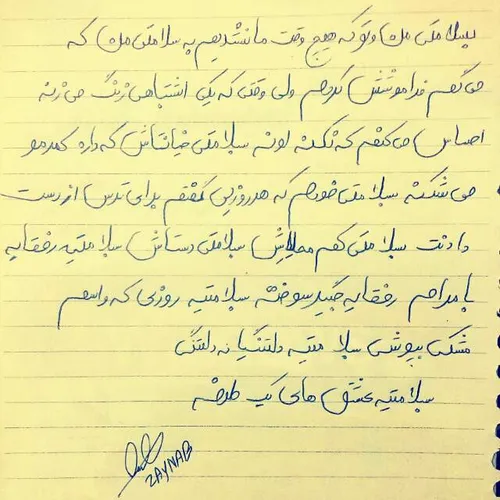 بسلامتی من و تو که هیچ وقت ما نشدیم به سلامتی من که
می گم فراموشش کردم ولی وقتی که یکی اشتباهی زنگ می زنه
احساس می کنم که نکنه اونه سلامتی خیانتاش که داره کمرمو
می شکنه سلامتی خودم که هر روز می گفتم برای ترس از دست
دادنت سلامتی کم محلیاش سلامتی دستاش سلامتیه رفقایه
با مرام رفقایه جیگر سوخته سلامتیه روزی که واسم
مشکی بپوشی سلامتیه دلتنگیا نه دلتنگی
سلامتیه عشق های یک طرفه
ZAYNAB